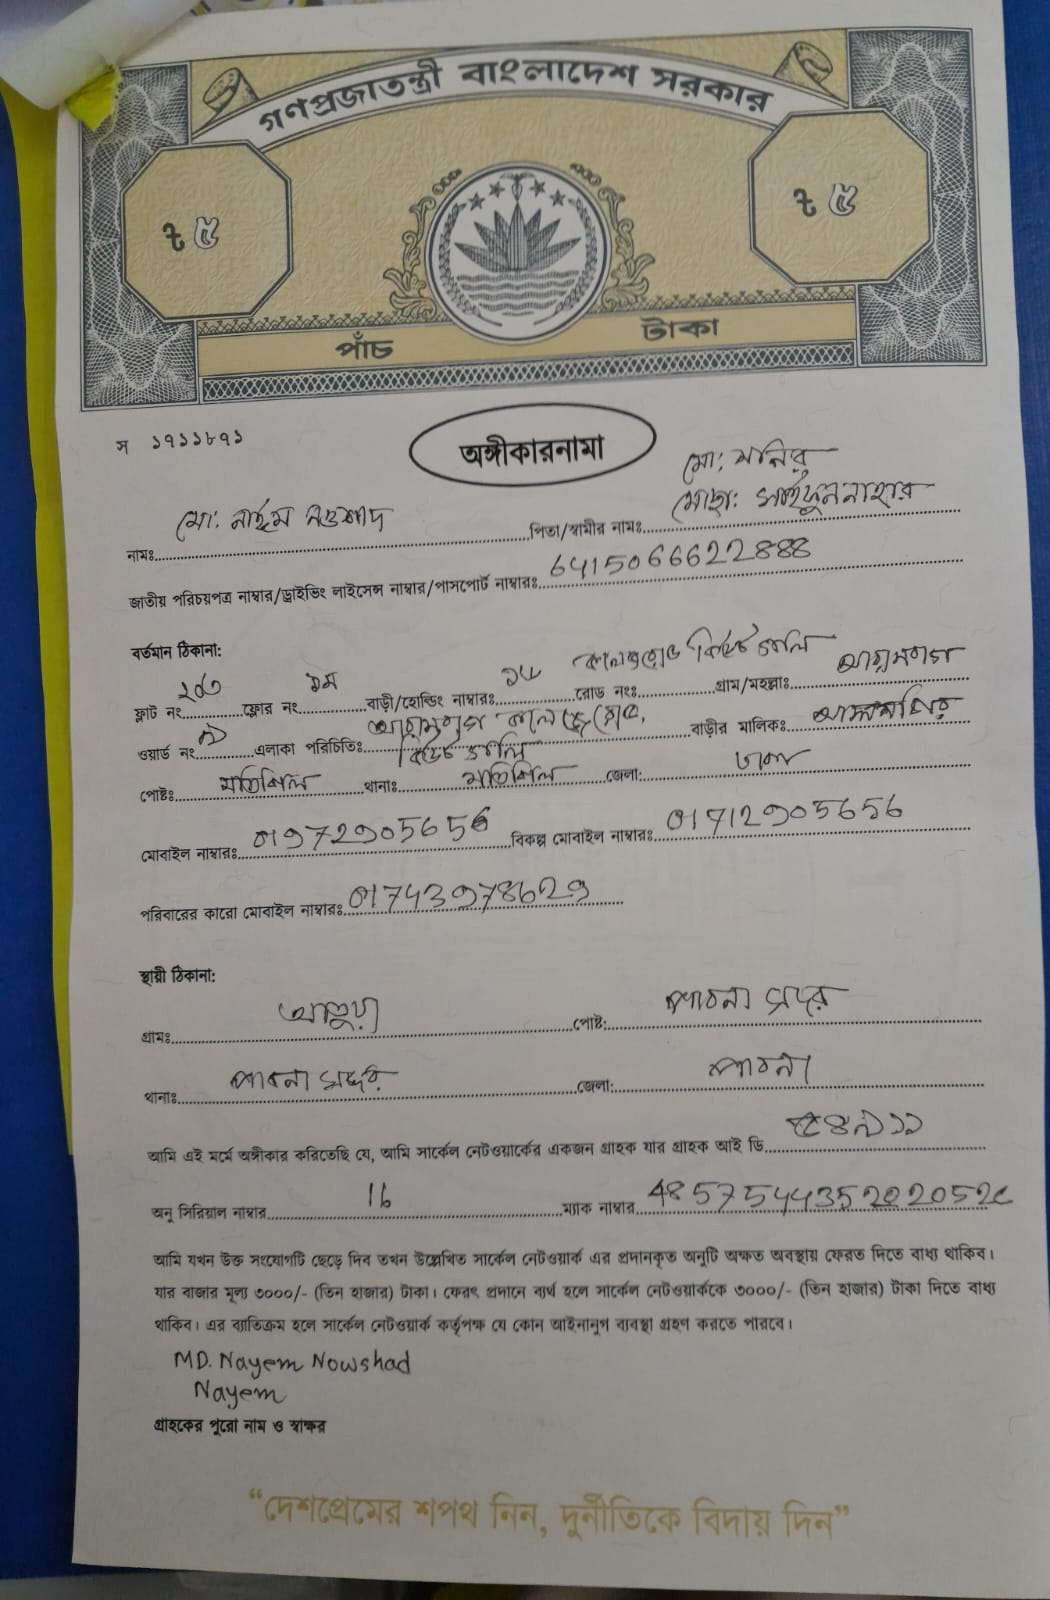 গণপ্রজাতন্ত্রী বাংলাদেশ সরকার
৳ ৫
৳ ৫
পাঁচ টাকা
স ১৭১১৮৭১
অঙ্গীকারনামা
মো: মনির
মো: নাইম নওশাদ মোছা: সাইদুন নাহার
নামঃ পিতা/স্বামীর নামঃ
জাতীয় পরিচয়পত্র নাম্বার/ড্রাইভিং লাইসেন্স নাম্বার/পাসপোর্ট নাম্বারঃ 6415066622888
বর্তমান ঠিকানা:
ফ্লাট নং ফ্লোর নং ৯ম বাড়ী/হোল্ডিং নাম্বারঃ ১৮ রোড নংঃ গ্রাম/মহল্লাঃ
ওয়ার্ড নং এলাকা পরিচিতিঃ বাড়ীর মালিক:
পোষ্টঃ মতিঝিল থানাঃ মতিঝিল জেলা: ঢাকা
মোবাইল নাম্বারঃ 01972905656 বিকল্প মোবাইল নাম্বারঃ 01712905656
পরিবারের কারো মোবাইল নাম্বারঃ 01743978629
স্থায়ী ঠিকানা:
গ্রামঃ পোষ্ট: পাবনা সদর
থানাঃ পাবনা সদর জেলা: পাবনা
আমি এই মর্মে অঙ্গীকার করিতেছি যে, আমি সার্কেল নেটওয়ার্কের একজন গ্রাহক যার গ্রাহক আই ডি
অনু সিরিয়াল নাম্বার 16 ম্যাক নাম্বার
আমি যখন উক্ত সংযোগটি ছেড়ে দিব তখন উল্লেখিত সার্কেল নেটওয়ার্ক এর প্রদানকৃত অনুটি অক্ষত অবস্থায় ফেরত দিতে বাধ্য থাকিব।
যার বাজার মূল্য ৩০০০/- (তিন হাজার) টাকা। ফেরৎ প্রদানে ব্যর্থ হলে সার্কেল নেটওয়ার্ককে ৩০০০/- (তিন হাজার) টাকা দিতে বাধ্য
থাকিব। এর ব্যতিক্রম হলে সার্কেল নেটওয়ার্ক কর্তৃপক্ষ যে কোন আইনানুগ ব্যবস্থা গ্রহণ করতে পারবে।
MD. Nayem Nowshad
Nayem
গ্রাহকের পুরো নাম ও স্বাক্ষর
“দেশপ্রেমের শপথ নিন, দুর্নীতিকে বিদায় দিন”